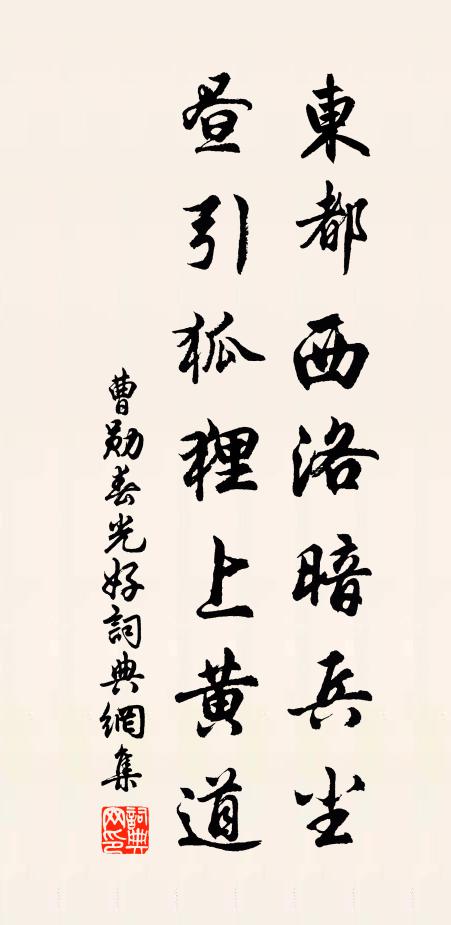 東都西洛暗兵尘
昼引狐狸上黄道
曹勋春光好詞典網集
詞典网印